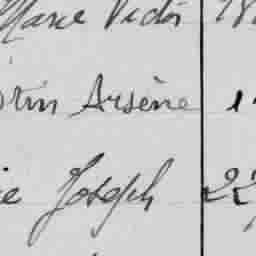 Marie Victor 18
tin Arsène 1
ie Joseph 22